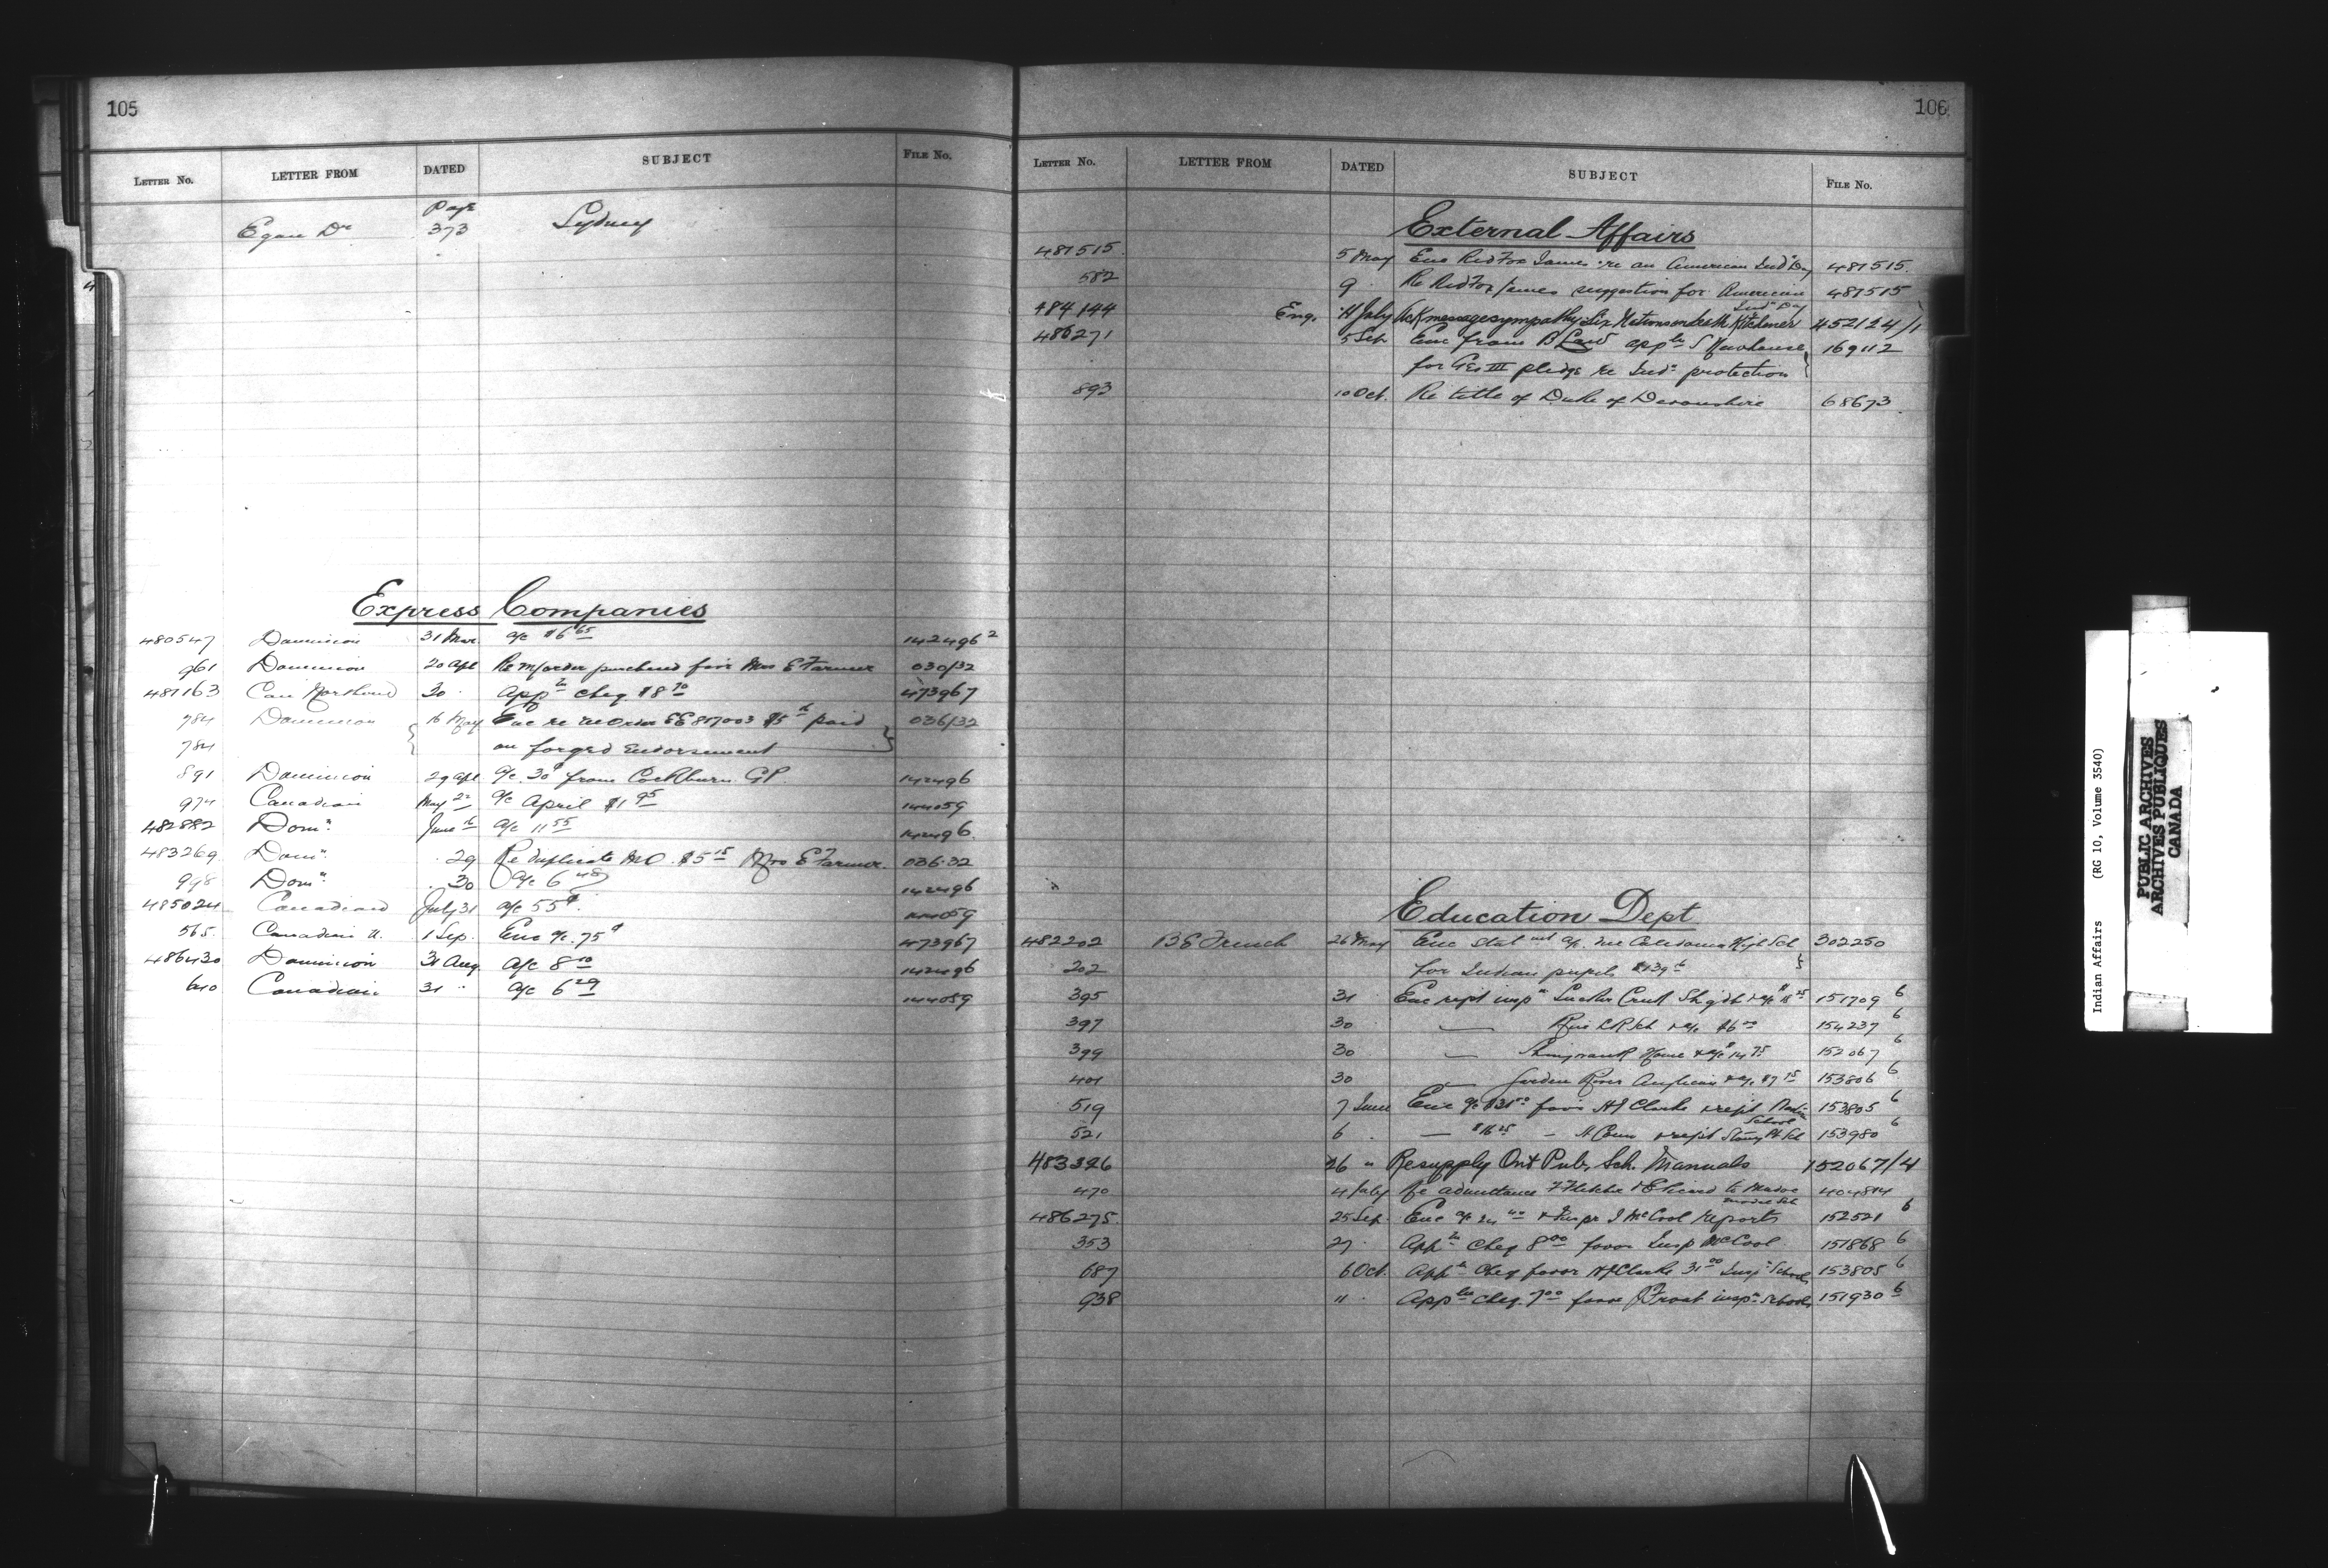 105
LETTER NO. LETTER FROM DATED SUBJECT FILE NO.
Egan Dr Page 373 Sydney
Express Companies
480547 Dominion 31 Mar. a/c $6 65 142496 2
961 Dominion 20 Apl Re M/order purchased from Mrs E Farmer 030/32
481163 Can Northern 30 App cheq. $8 70 473967
784 Dominion 16 May Enc re M Order EE 817003 $5 paid 036/32
784 on forged Endorsement
891 Dominion 29 Apl a/c 30¢ from Cockburn G.P. 142496
974 Canadian May 22 a/c April $1 95 144059
482882 Domn June 16 a/c 11 55 142496
483269 Domn 29 Re duplicate M.O. $5 15 Mrs E Farmer. 036.32
998 Domn 30 a/c 6 48 142496
485024 Canadian July 31 a/c 55¢ 144059
565 Canadian N. 1 Sep. Enc a/c. 75¢ 473967
486430 Dominion 31 Aug a/c 8 10 142496
640 Canadian 31 " a/c 6 29 144059
106
LETTER NO. LETTER FROM DATED SUBJECT FILE NO.
External Affairs
481515 5 May Enc Red Fox James re an American Ind Day 481515
582 9 Re Red Fox James suggestion for American Ind Day 481515
484144 Eng. 11 July Ack message sympathy Six Nations on death Kitchener 452124/1
486271 5 Sep Enc from B Law appln S Newhouse 169112
for Geo III pledge re Indn protection
893 10 Oct. Re title of Duke of Devonshire 68673
Education Dept
482202 B E French 26 May Enc statmt a/c. re Caledonia High Sch 302250
202 for Indian pupils
395 31 Enc rept inspn 151709 6
397 30 — $6 00 154237 6
399 30 — Shingwauk Home & a/c 14 75 152067 6
401 30 — Garden River Anglican & a/c 153806 6
519 7 June Enc a/c favor H J Clarke & rept School 153805 6
521 6 — $16 25 — & rept Stony Pt Sch 153980 6
483326 26 " Re supply Ont Pub. Sch. Manuals 152067/4
470 4 July Re admittance to Model Sch 404814
486275 25 Sep. Enc a/c & Inspr J McCool reports 152521 6
353 27 Appn cheq 8 00 favor Insp McCool 151868 6
687 6 Oct. Appn cheq favor H J Clarke 31 00 Inspn Schools 153805 6
938 11 Appln cheq. 7 00 favor J Froat inspn Schools 151930 6
Indian Affairs (RG 10, Volume 3540)
PUBLIC ARCHIVES
ARCHIVES PUBLIQUES
CANADA